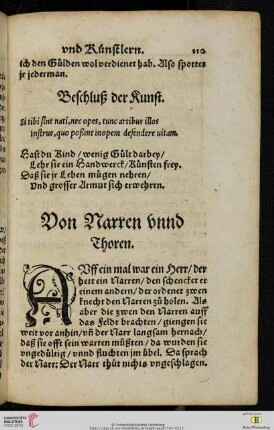 vnd Künstlern. 110
ich den Gülden wol verdienet hab. Also spottet
jr jederman.
Beschluß der Kunst.
Si tibi sint nati, nec opes, tunc artibus illos
instrue, quo poßint inopem defendere uitam.
Hastu Kind / wenig Gült darbey /
Lehr sie ein Handwerck / Künsten frey.
Daß sie jr Leben mügen nehren /
Vnd grosser Armut sich erwehren.
Von Narren vnnd
Thoren.
AUff ein mal war ein Herr / der
hett ein Narren / den schencket er
einem andern / der ordenet zwen
knecht den Narren zu holen. Als
aber die zwen den Narren auff
das Feldt brachten / giengten sie
weit vor anhin / vñ der Narr langsam hernach /
daß sie offt sein warten müßten / da wurden sie
vngedültig / vnnd fluchten jm übel. Da sprach
der Narr: Der Narr thüt nichts vngeschlagen.
UNIVERSITÄTS-
BIBLIOTHEK
HEIDELBERG
© Universitätsbibliothek Heidelberg